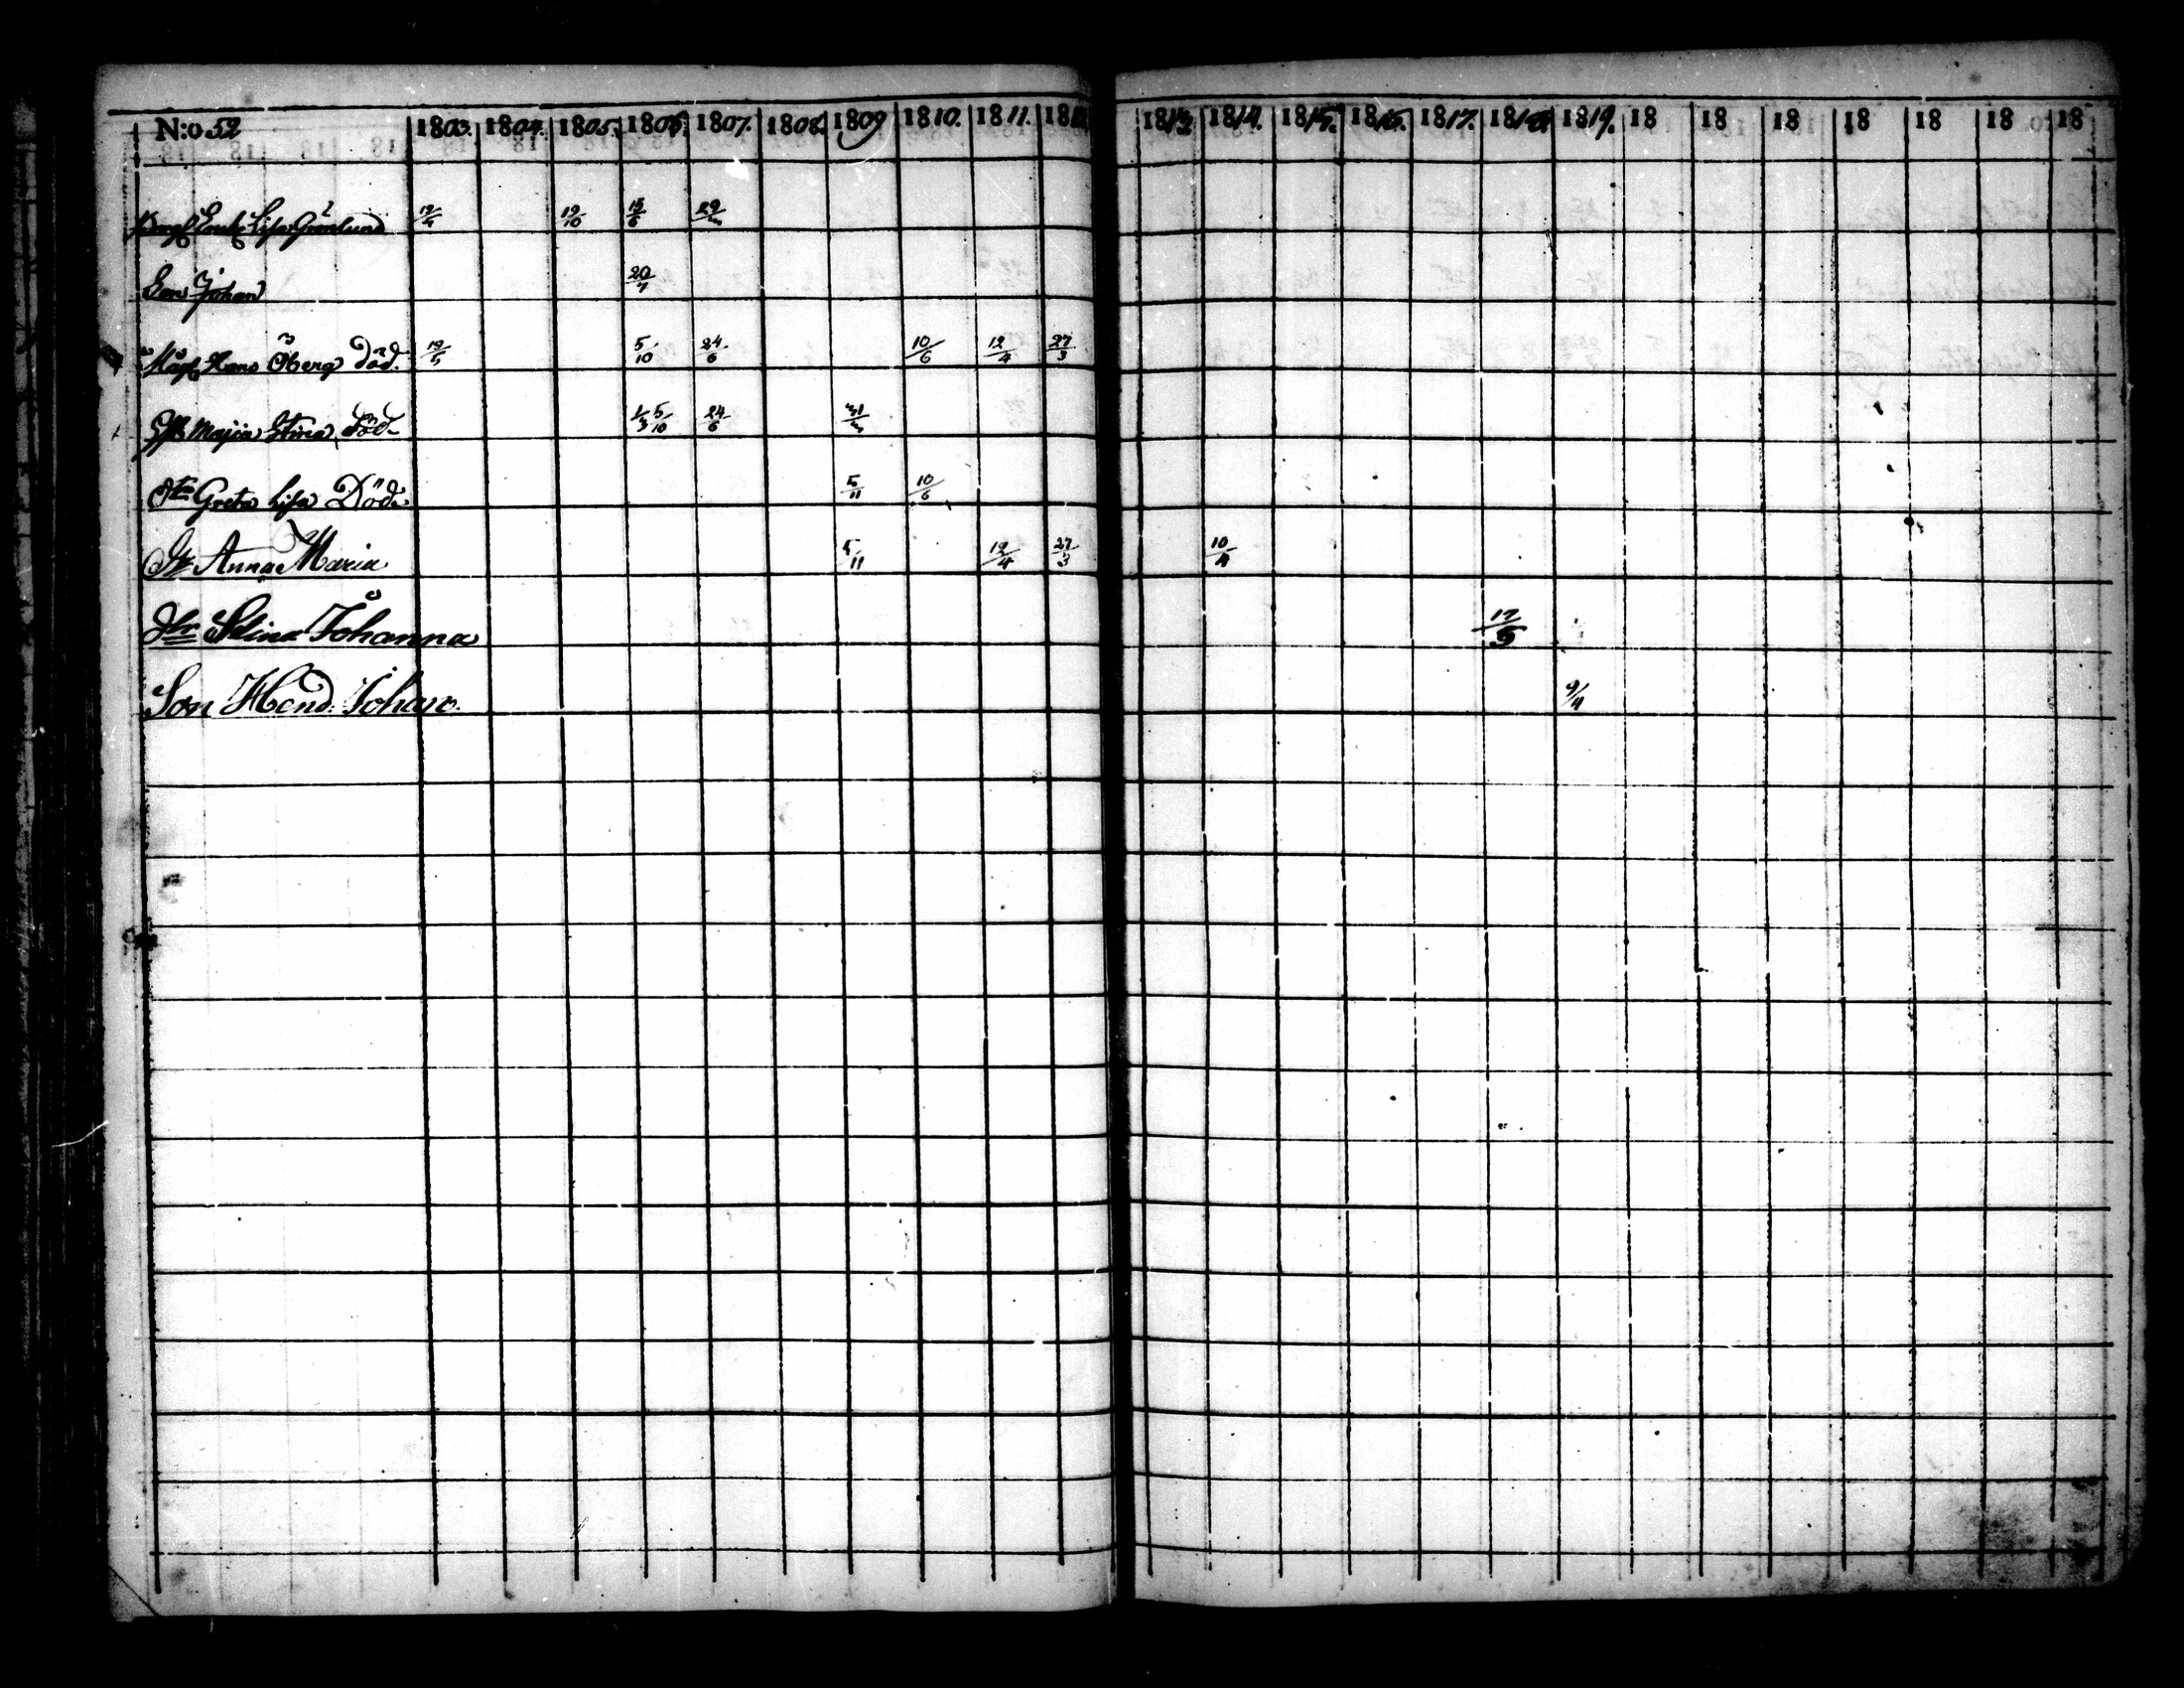 N:o 52 1803. 1804. 1805. 1806. 1807. 1808. 1809 1810. 1811. 1812 1813 1814. 1815. 1816. 1817. 1818 1819. 18 18 18 18 18 18 18
Enk. Lisa Grönlund 19/10 15/6 29/3
Son Johan 20/7
Måg Hans Öberg död. 5/10 24/6 10/6 12/4 27/3
Majia Stina död 1/3 5/10 24/6 31/3
Greta Lisa Död. 5/11 10/6
Anna Maria 5/11 12/4 27/3 10/4
dtr Stina Johanna 17/5
Son Hend. Johan. 9/4